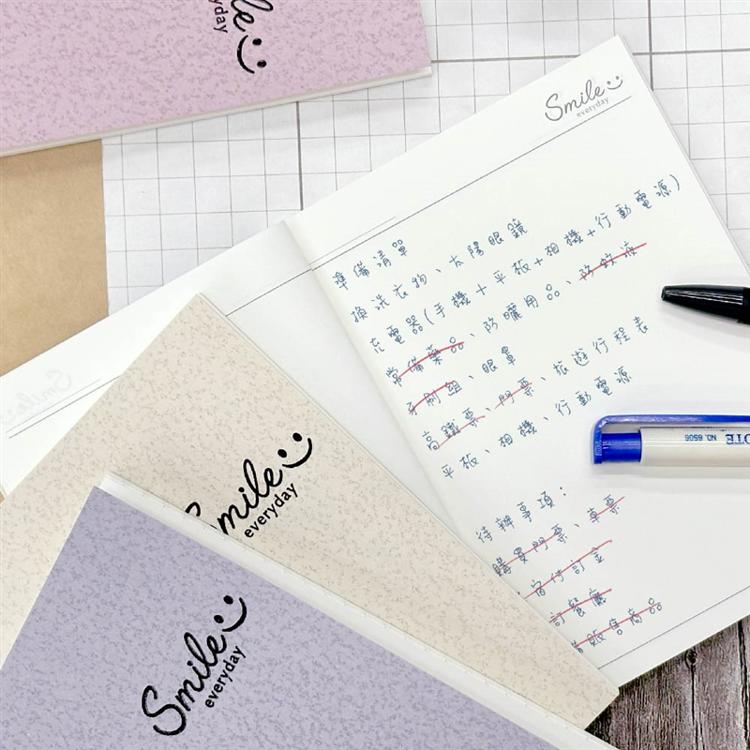 Smile
everyday
Smile
everyday
準備清單
換洗衣物、太陽眼鏡
充電器(手機+平板+相機+行動電源)
常備藥品、防曬用品、防蚊液
牙刷組、眼罩
高鐵票、門票、旅遊行程表
平板、相機、行動電源
待辦事項:
購買門票、車票
宿行訂金
訂餐廳
販售商品
NOTE
NO. 6506
Smile
everyday
Smile
everyday